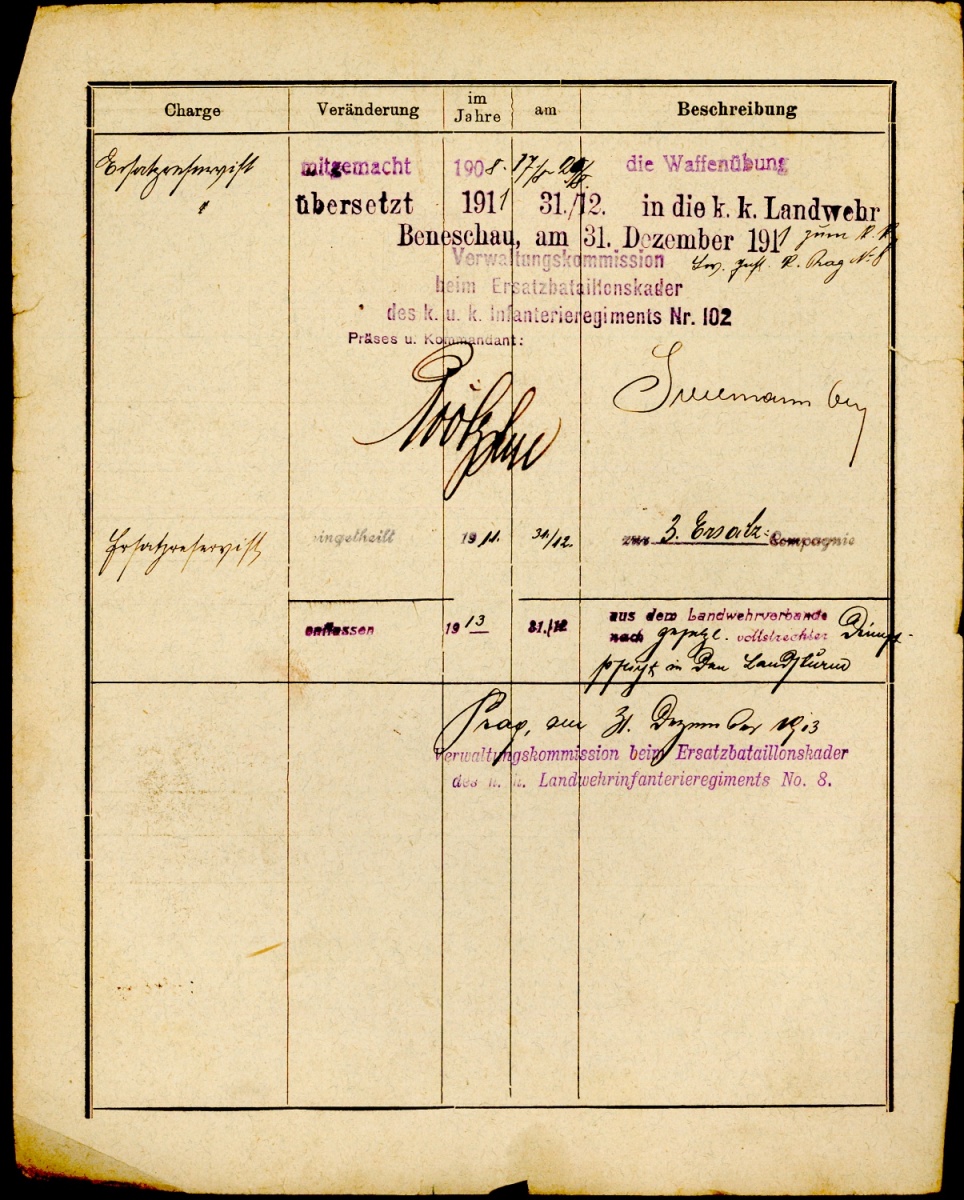 Charge Veränderung im Jahre am Beschreibung
Ersatzreservist mitgemacht 1908. 17/ die Waffenübung
" übersetzt 1911 31./12. in die k. k. Landwehr
Beneschau, am 31. Dezember 1911 zum k. k.
Verwaltungskommission Lw. Inft. R. Prag No 8
beim Ersatzbataillonskader
des k. u. k. Infanterieregiments Nr. 102
Präses u. Kommandant:
Ersatzreservist eingetheilt 1911. 31/12. zur 3. Ersatz-Compagnie
entlassen 1913 31./12 aus dem Landwehrverbande
nach gesetzl. vollstreckter Dienst-
pflicht in den Landsturm
Prag, am 31. Dezember 1913
Verwaltungskommission beim Ersatzbataillonskader
des k. k. Landwehrinfanterieregiments No. 8.